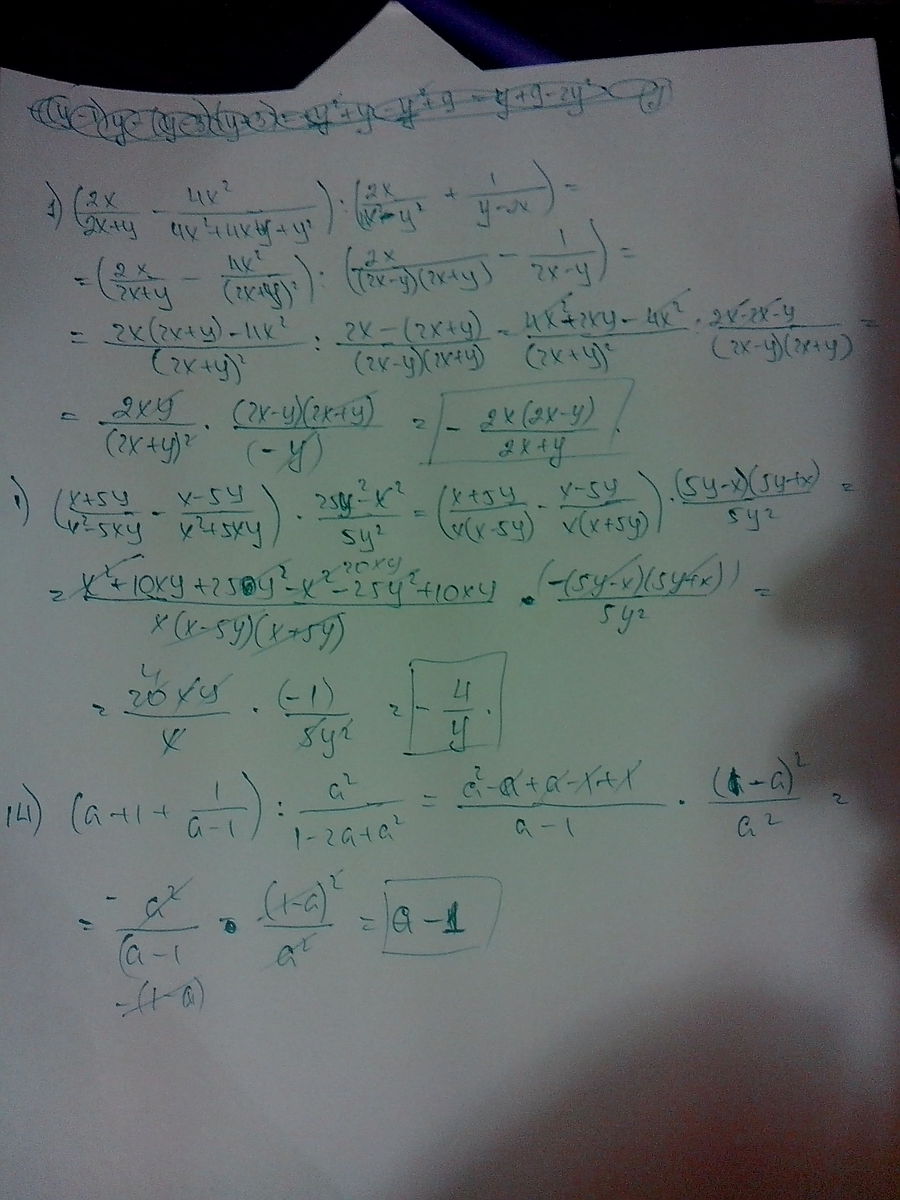 1) (2x/(2x+y) - 4x²/(4x²+4xy+y²)) : (2x/(4x²-y²) + 1/(y-2x)) =
= (2x/(2x+y) - 4x²/(2x+y)²) : (2x/((2x-y)(2x+y)) - 1/(2x-y)) =
= (2x(2x+y)-4x²)/(2x+y)² : (2x-(2x+y))/((2x-y)(2x+y)) = (4x²+2xy-4x²)/(2x+y)² : (2x-2x-y)/((2x-y)(2x+y)) =
= 2xy/(2x+y)² · (2x-y)(2x+y)/(-y) = - 2x(2x-y)/(2x+y).
1) ((x+5y)/(x²-5xy) - (x-5y)/(x²+5xy)) · (25y²-x²)/5y² = ((x+5y)/(x(x-5y)) - (x-5y)/(x(x+5y))) · (5y-x)(5y+x)/5y² =
20xy
= (x²+10xy+25y²-x²-25y²+10xy)/(x(x-5y)(x+5y)) · (-(5y-x)(5y+x))/5y² =
4
= 20xy/x · (-1)/5y² = - 4/y.
14) (a+1+1/(a-1)) : a²/(1-2a+a²) = (a²-a+a-1+1)/(a-1) · (1-a)²/a² =
= - a²/(a-1 · (1-a)²/a² = a-1
-(1-a)